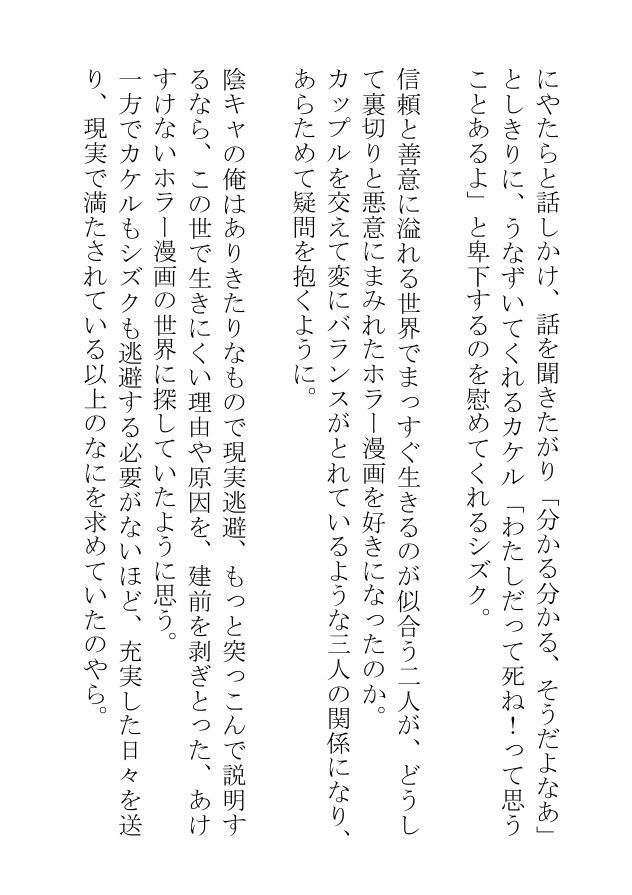 にやたらと話しかけ、話を聞きたがり「分かる分かる、そうだよなあ」
としきりに、うなずいてくれるカケル「わたしだって死ね！って思う
ことあるよ」と卑下するのを慰めてくれるシズク。
信頼と善意に溢れる世界でまっすぐ生きるのが似合う二人が、どうし
て裏切りと悪意にまみれたホラー漫画を好きになったのか。
カップルを交えて変にバランスがとれているような三人の関係になり、
あらためて疑問を抱くように。
陰キャの俺はありきたりなもので現実逃避、もっと突っこんで説明す
るなら、この世で生きにくい理由や原因を、建前を剥ぎとった、あけ
すけないホラー漫画の世界に探していたように思う。
一方でカケルもシズクも逃避する必要がないほど、充実した日々を送
り、現実で満たされている以上のなにを求めていたのやら。